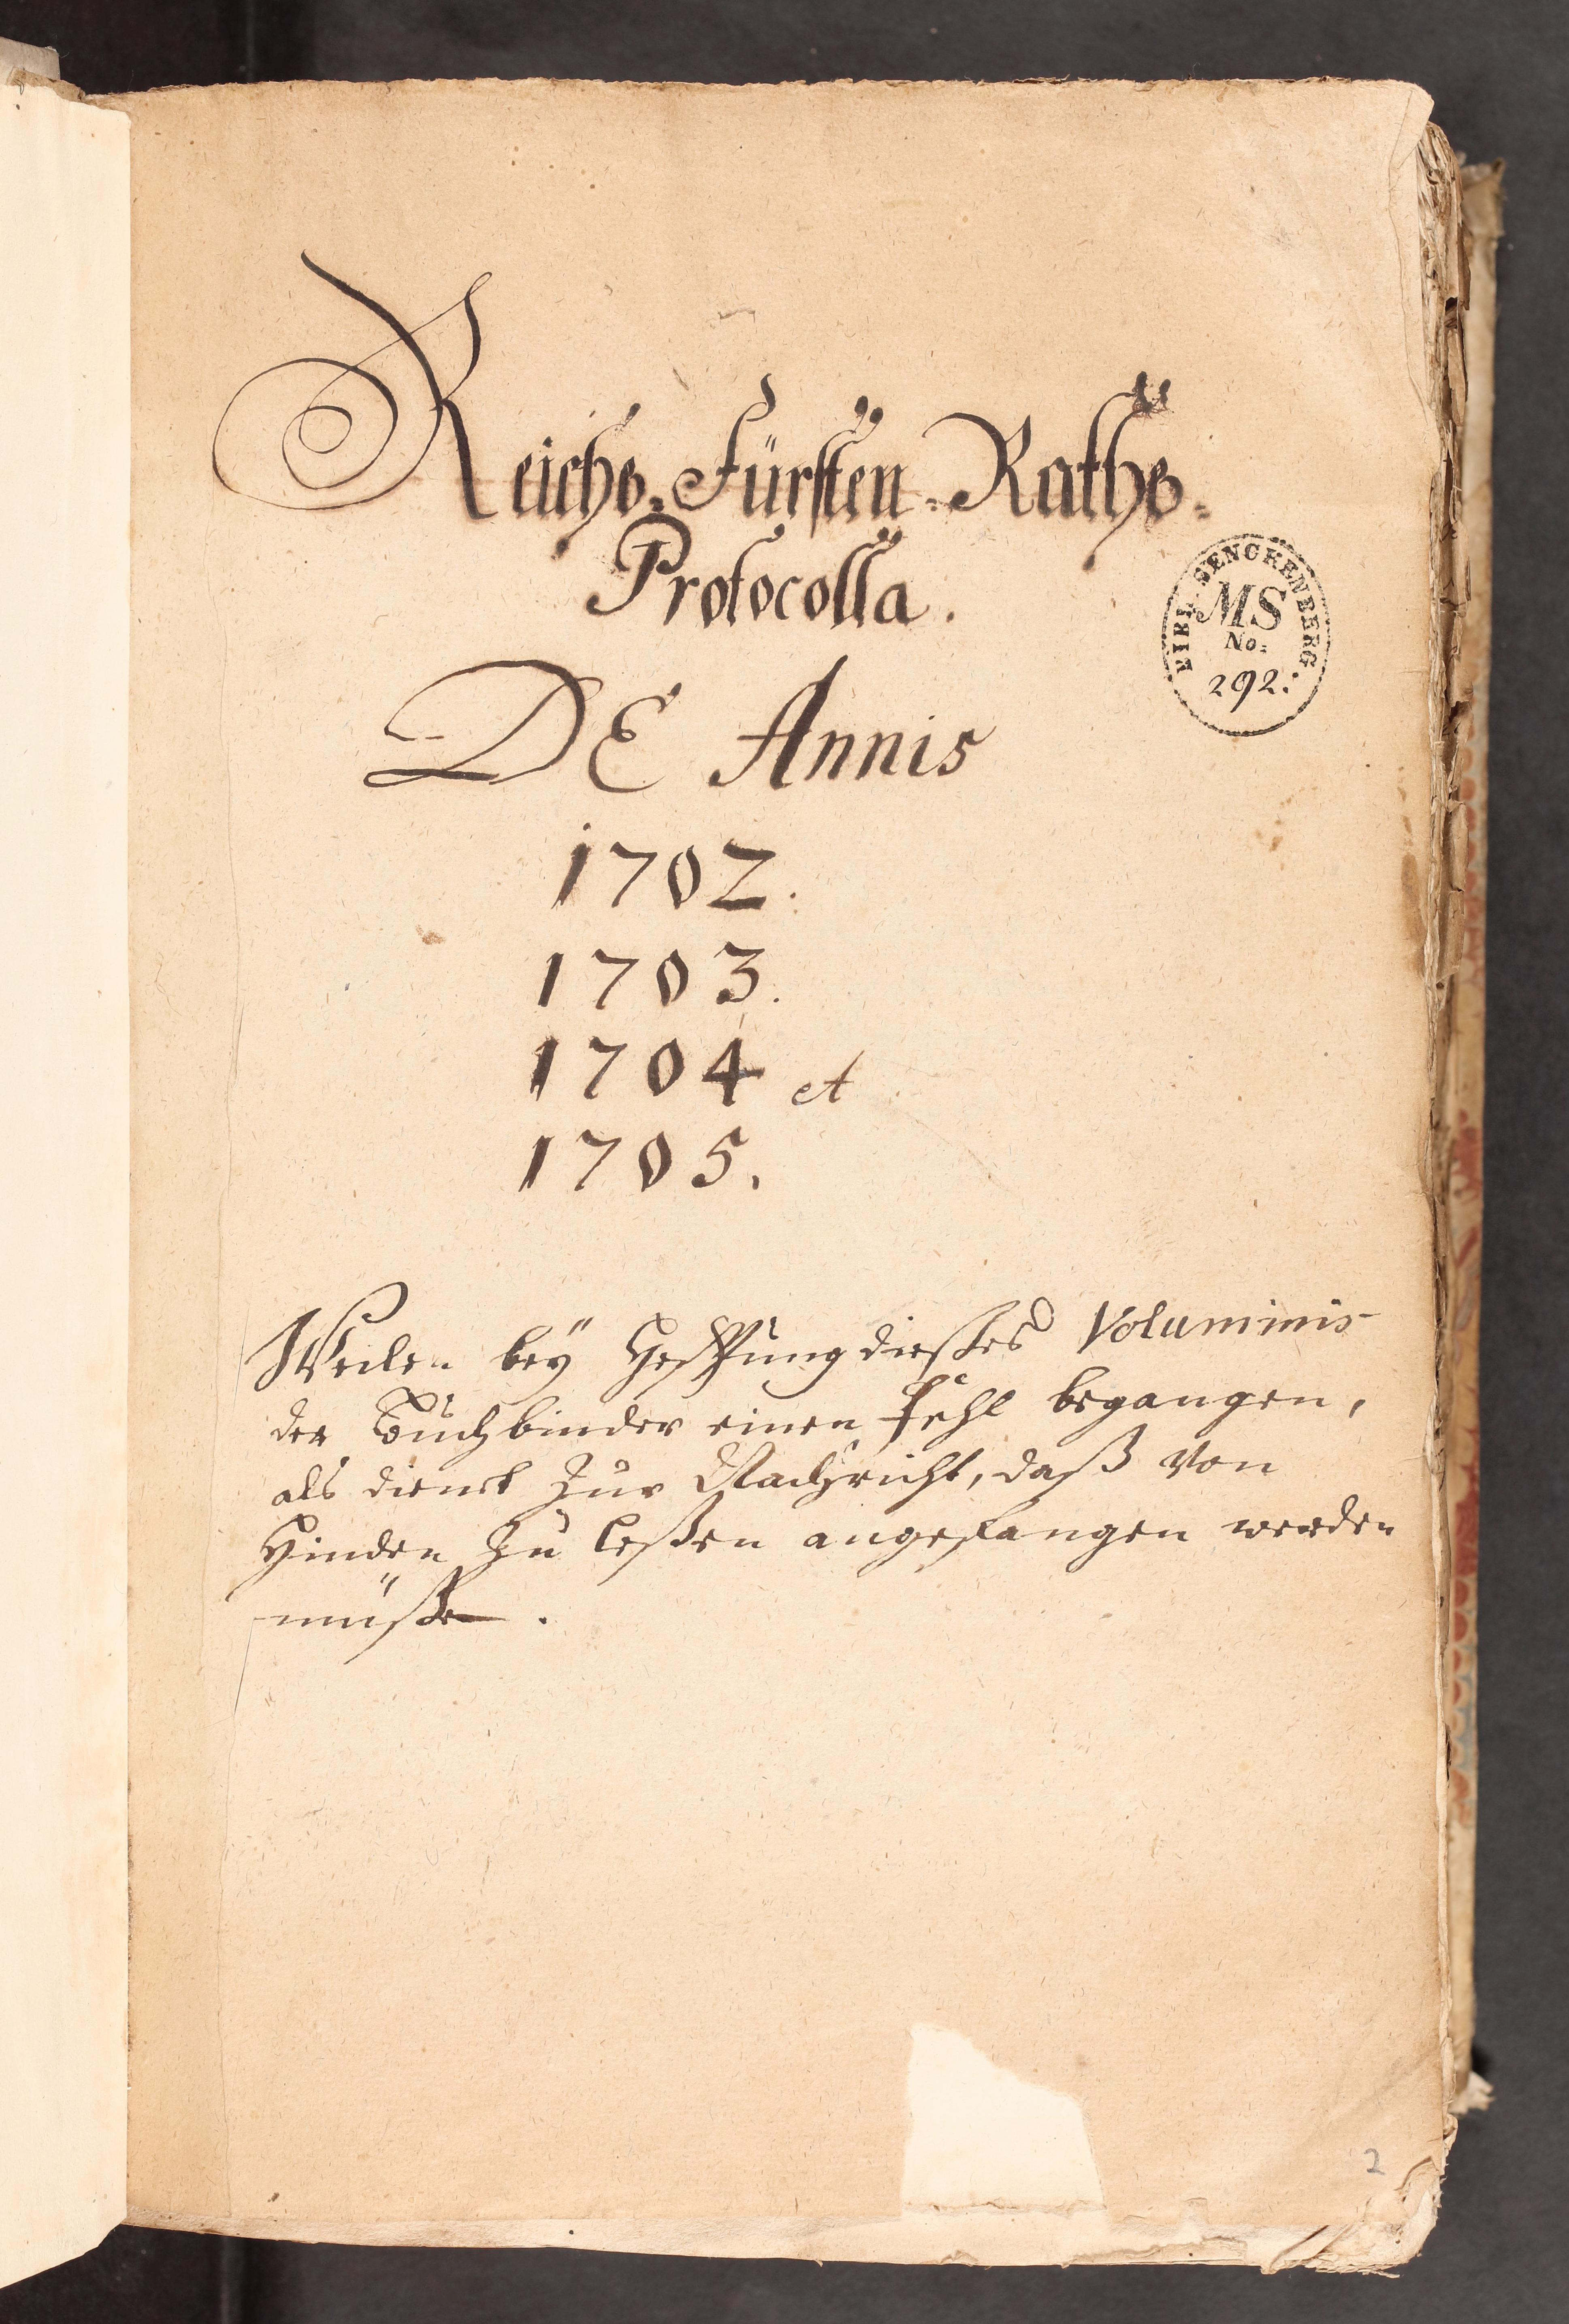 Reichs-Fürsten-Raths-
Protocolla.
BIBL. SENCKENBERG
MS
No:
292.
DE Annis
1702.
1703.
1704 et
1705.
Weilen beÿ Hefftung dießes Voluminis
der Buchbinder einen Fehl begangen,
als dienet zur Nachricht, daß von
Hinden zu leßen angefangen werden
müße.
2